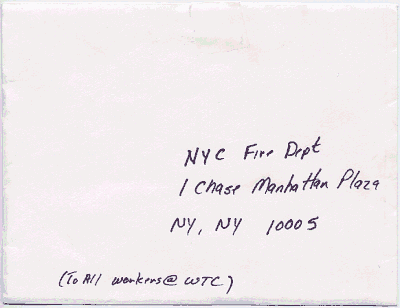 NYC Fire Dept
1 Chase Manhattan Plaza
NY, NY 10005
(To All workers@ WTC)